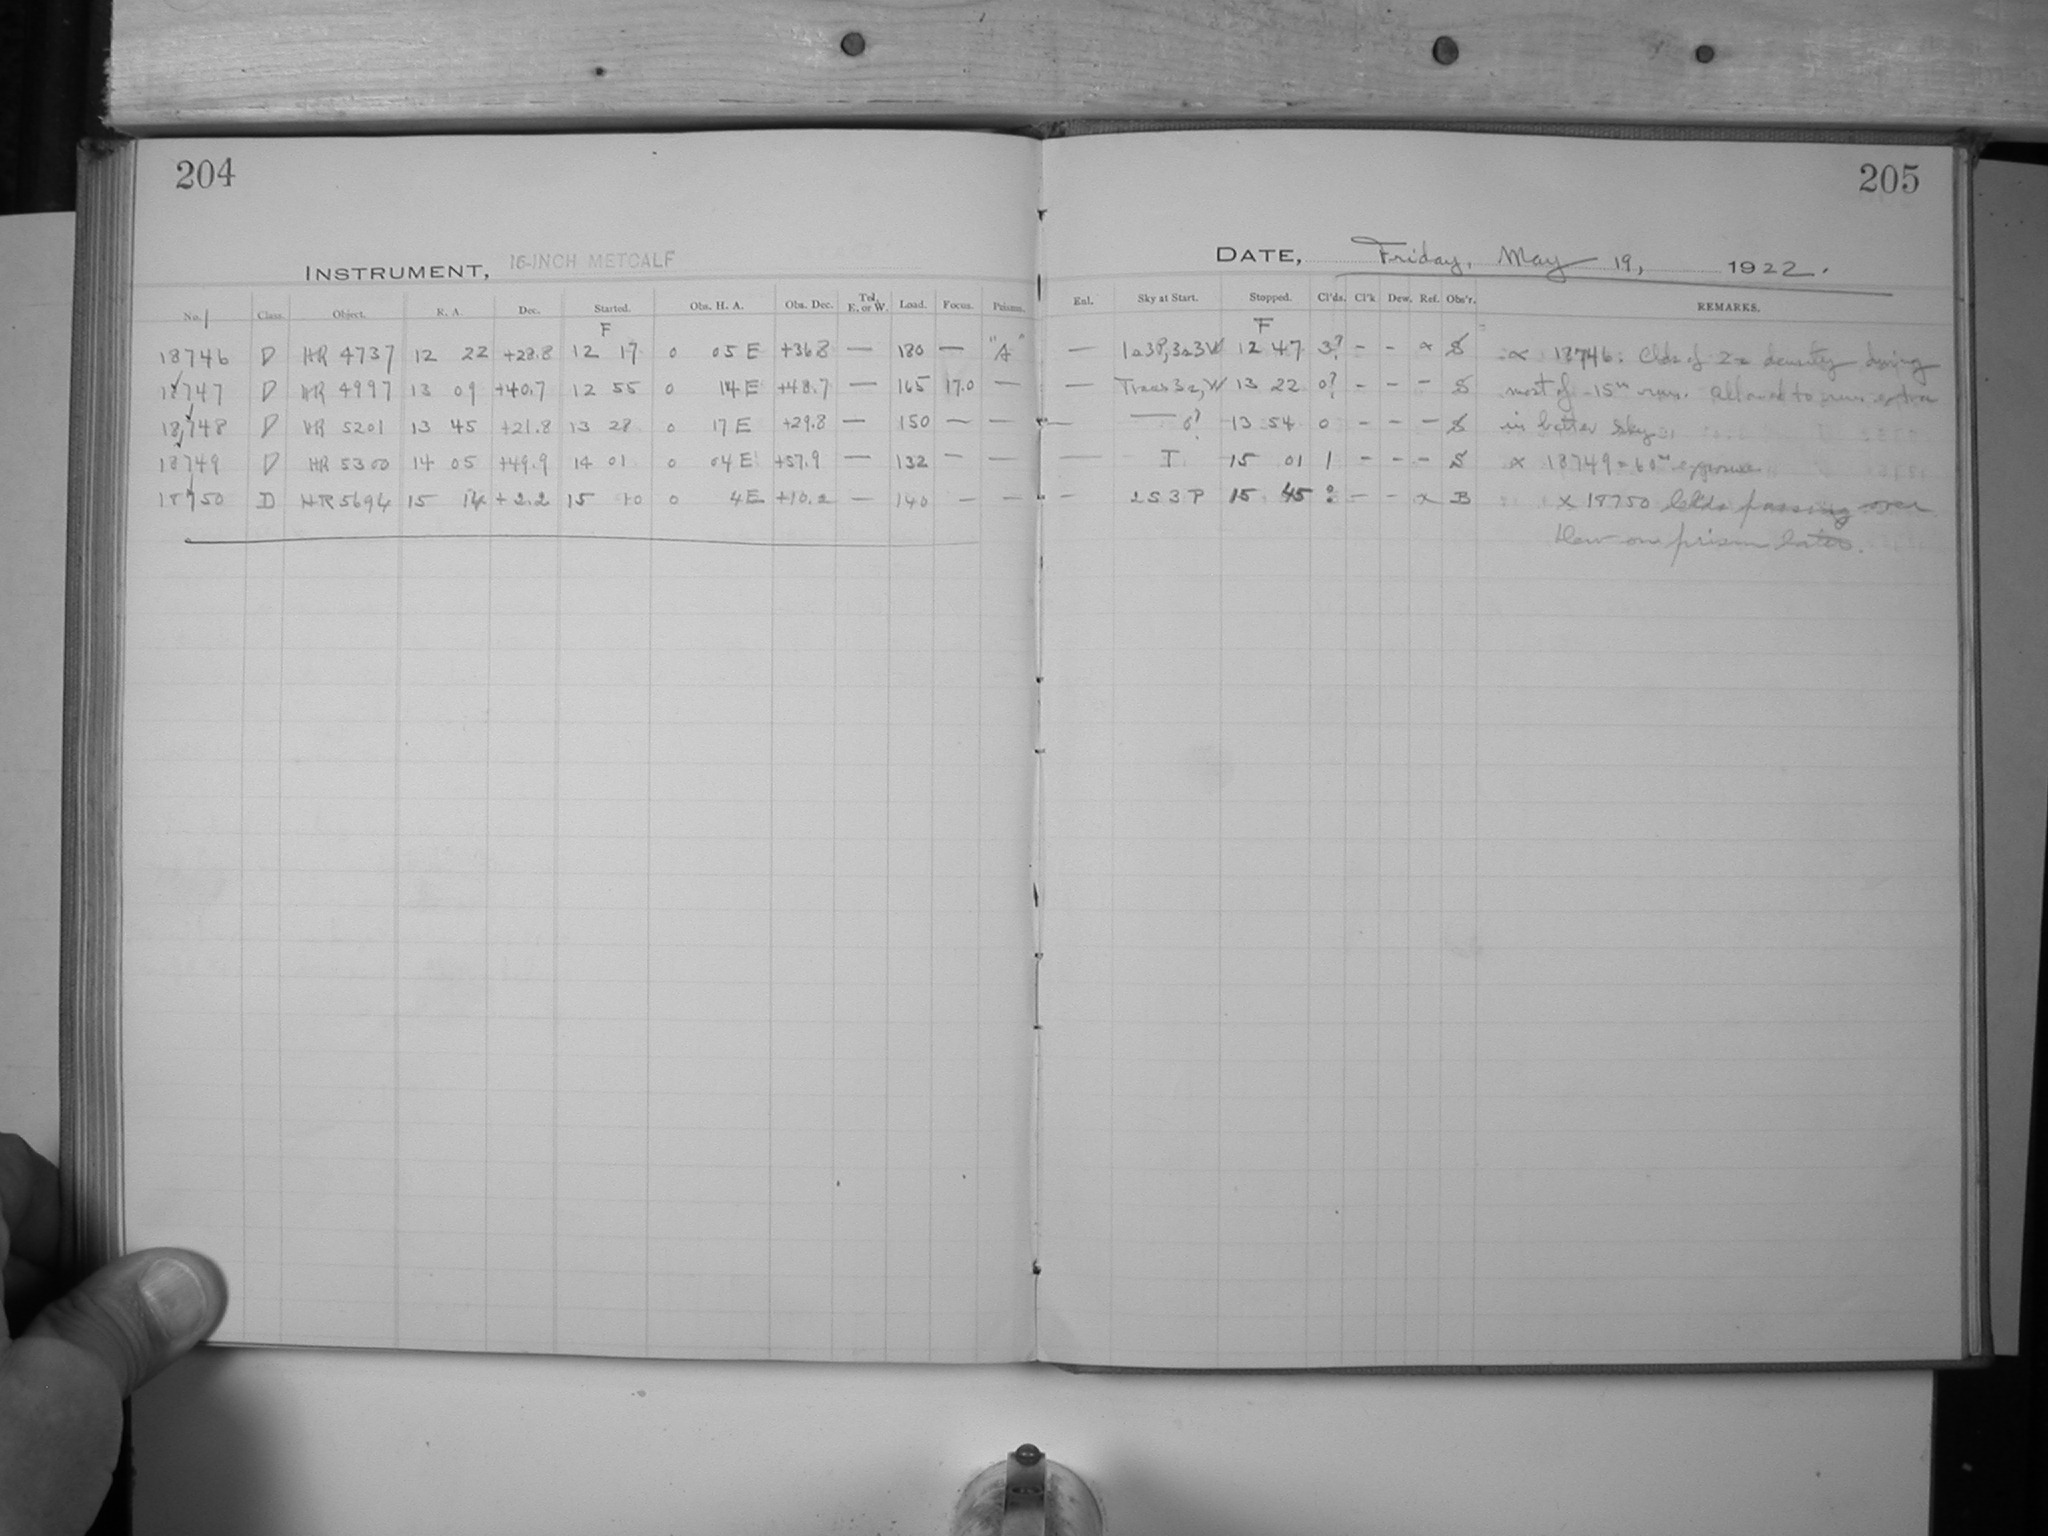 204
205
INSTRUMENT, 16-INCH METCALF
DATE, Friday, May 19, 1922.
No. Class. Object. R. A. Dec. Started. Obs. H. A. Obs. Dec. Tel. E. or W. Load. Focus. Prisms. Enl. Sky at Start. Stopped. Cl'ds. Cl'k Dew. Ref. Obs'r. REMARKS.
F F
18746 D HR 4737 12 22 +28.8 12 17 0 05 E +36.8 — 180 — "A" — 12 47 3? - - x S x 18746: Clds of density during
18747 D HR 4997 13 09 +40.7 12 55 0 14 E +48.7 — 165 17.0 — — 13 22 0? - - - S most of 15m run. Allowed to run extra
18748 D HR 5201 13 45 +21.8 13 28 0 17 E +29.8 — 150 — — — — 0? 13 54 0 - - - S in better sky
18749 D HR 5300 14 05 +49.9 14 01 0 04 E +57.9 — 132 — — — T 15 01 1 - - - S x 18749 = 60m exposure
18750 D HR 5694 15 14 +2.2 15 10 0 4 E +10.2 — 140 — — — 2 S 3 P 15 45 ? - - x B x 18750 Clds passing over
Dew on prism later.